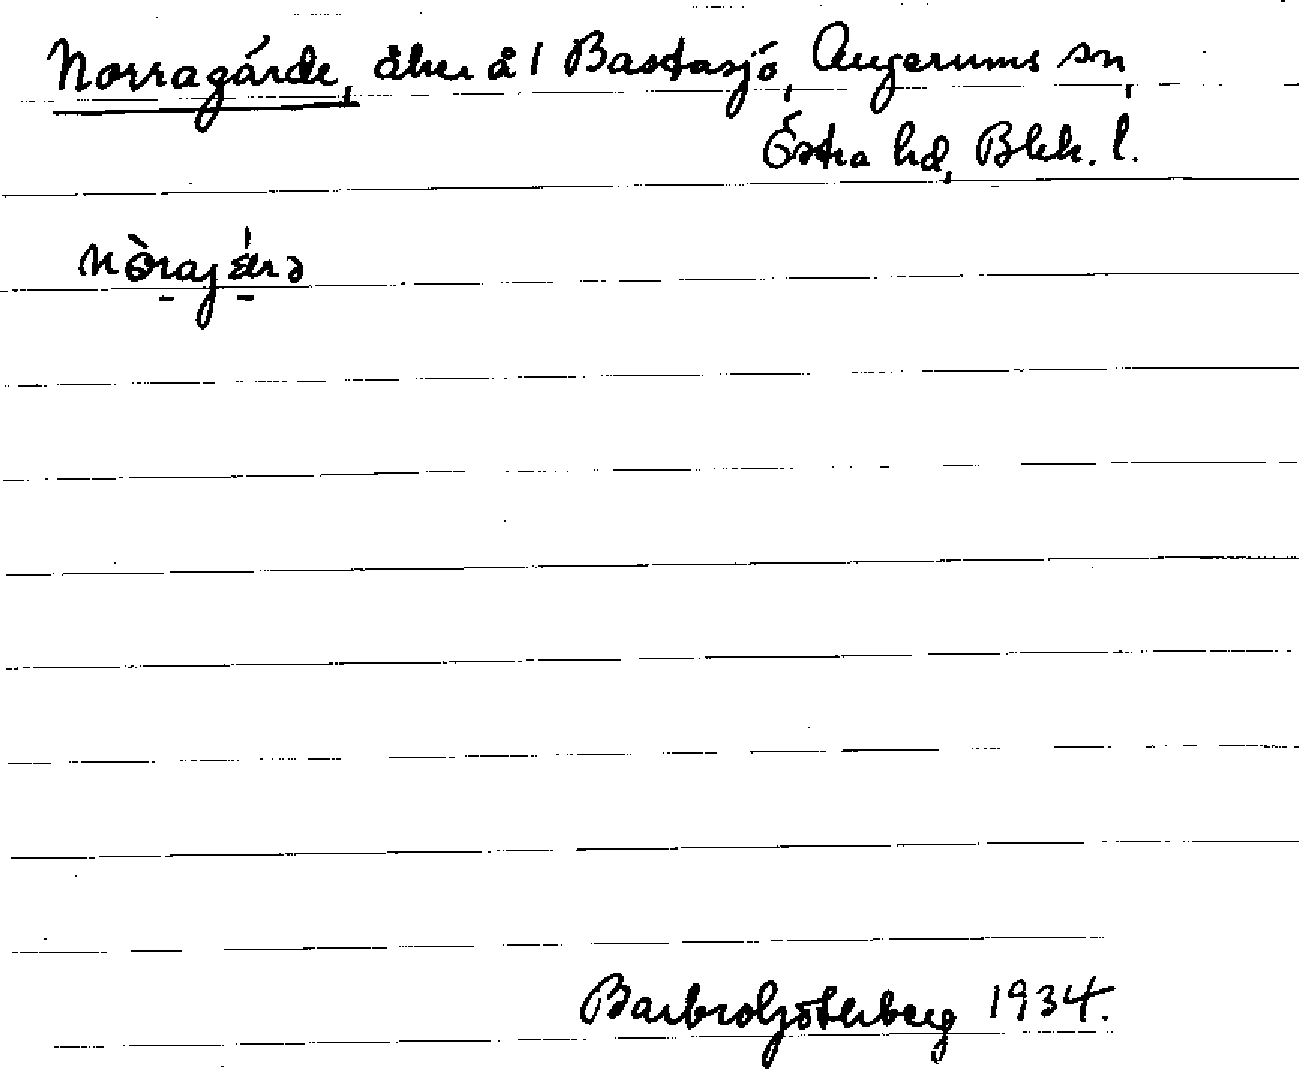 Norragärde, åker å 1 Bastasjö, Augerums sn,
Östra hd, Blek. l.
Barbro Göterberg 1934.